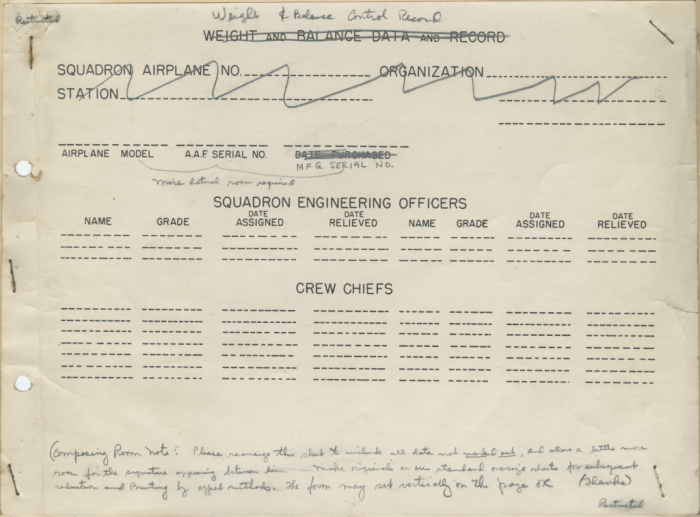 Restricted
Weight & Balance Control Record
WEIGHT AND BALANCE DATA AND RECORD
SQUADRON AIRPLANE NO. ORGANIZATION
STATION
AIRPLANE MODEL A.A.F SERIAL NO. DATE PURCHASED
MFG. SERIAL NO.
More lateral room required
SQUADRON ENGINEERING OFFICERS
NAME GRADE DATE ASSIGNED DATE RELIEVED NAME GRADE DATE ASSIGNED DATE RELIEVED
CREW CHIEFS
(Composing Room Note: Please rearrange this sheet to include all data not marked out, and allow a little more
room for the signature between Make originals on our standard sheets for subsequent
reduction and Printing by offset methods. The form may set vertically on the page OK (Thanks)
Restricted